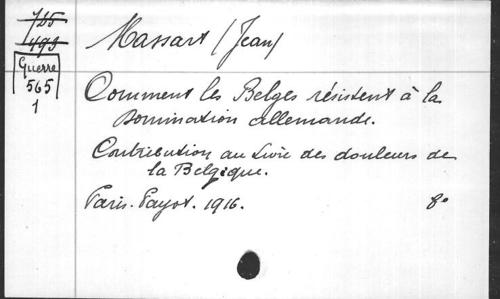 725
493
Guerre
565
1
Massart (Jean)
Comment les Belges résistent à la
Domination allemande.
Contribution au Livre des douleurs de
la Belgique.
Paris. Payot. 1916. 8°